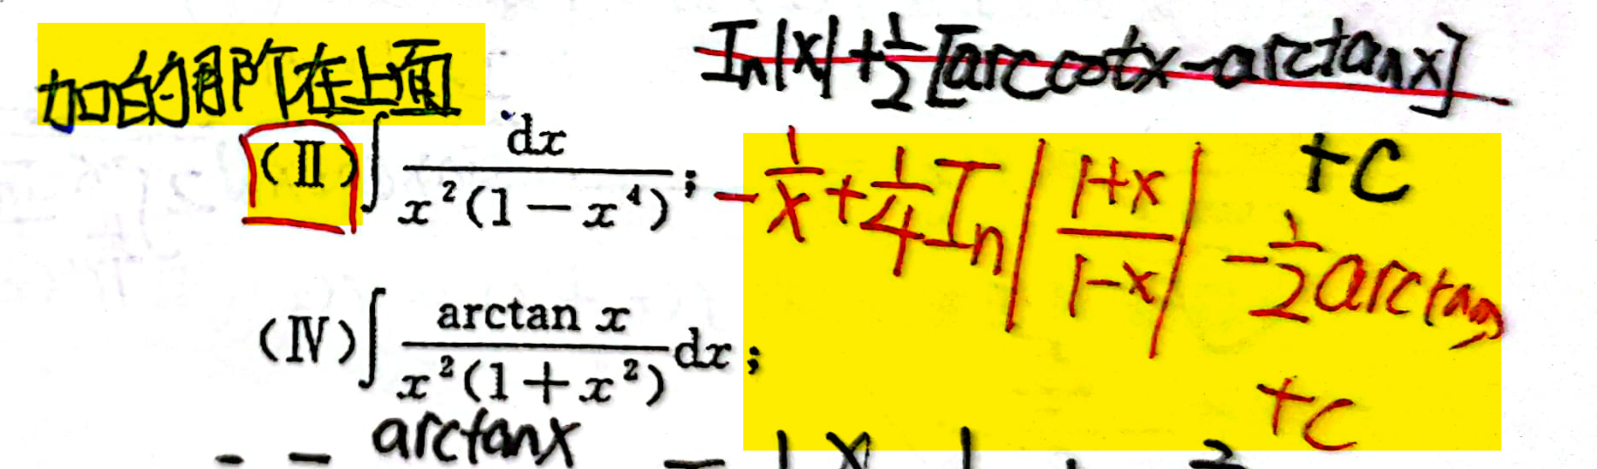 加的那个在上面
In|x|+1/2[arccotx-arctanx]
+C
(Ⅱ)∫dx/(x²(1-x⁴)); -1/x+1/4In|(1+x)/(1-x)| -1/2arctan
+C
(Ⅳ)∫arctan x/(x²(1+x²))dx;
arctanx